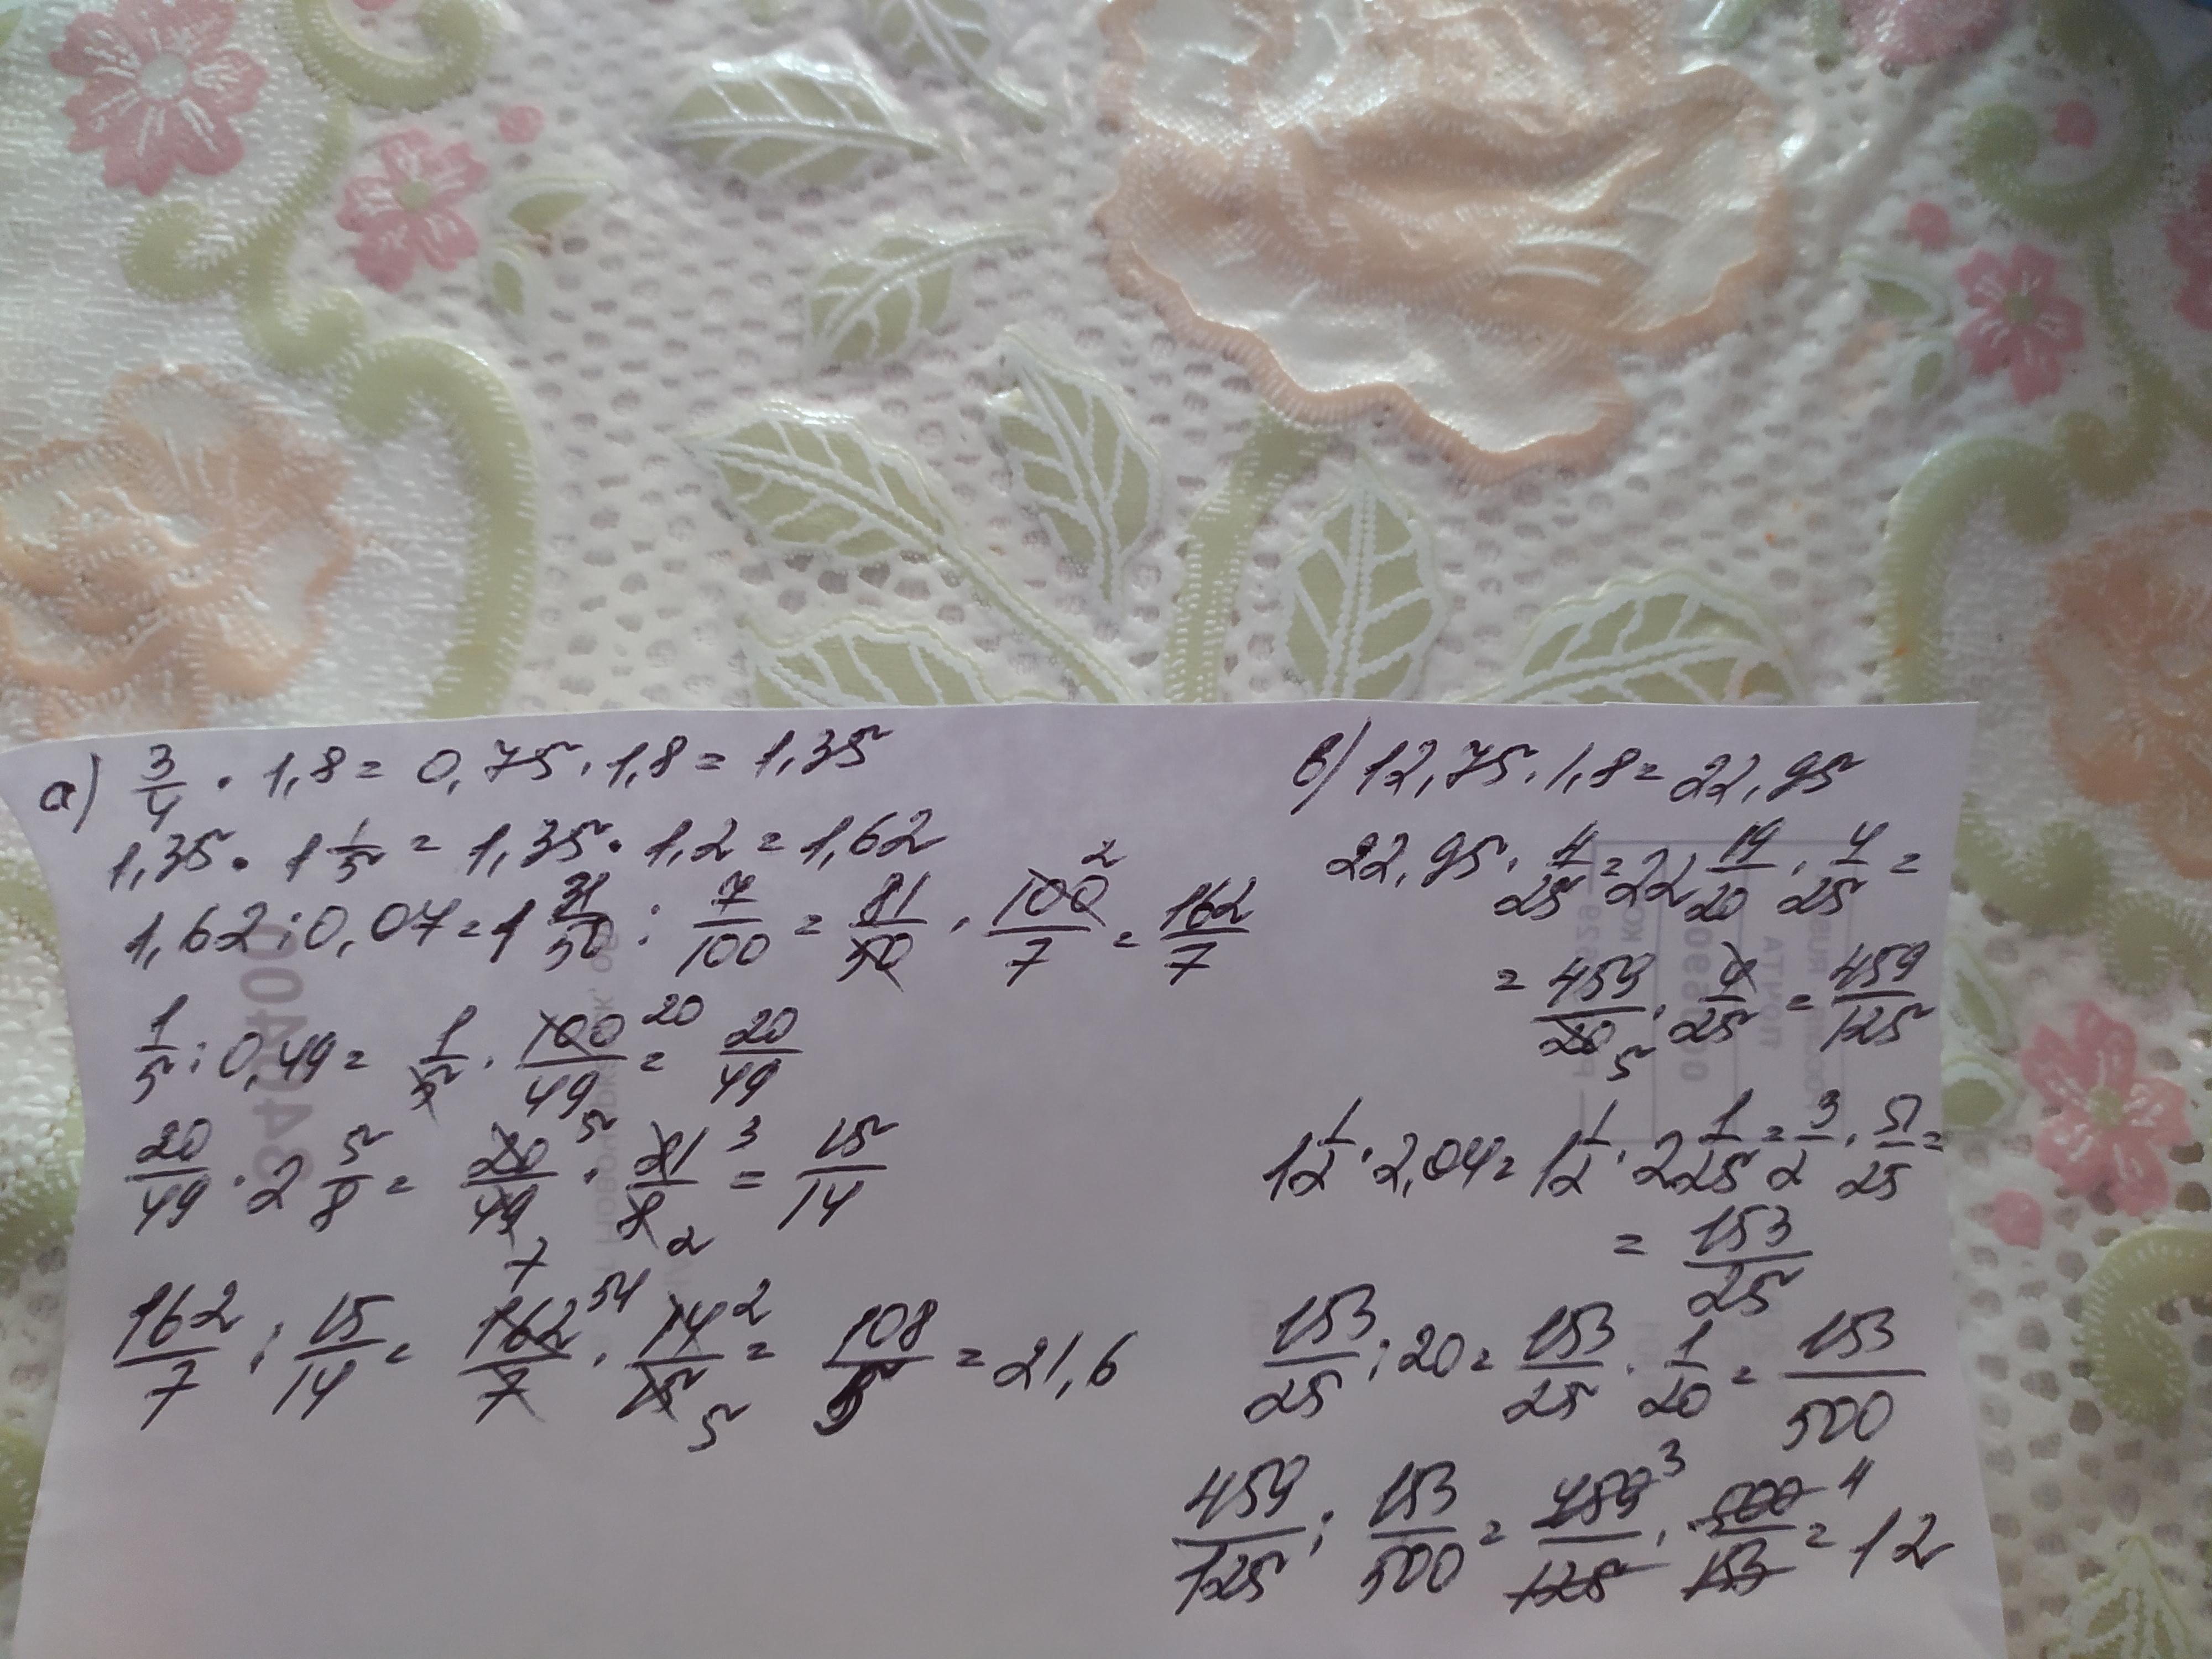 а) 3/4 · 1,8 = 0,75 · 1,8 = 1,35
1,35 · 1 1/5 = 1,35 · 1,2 = 1,62
1,62 : 0,07 = 1 31/50 : 7/100 = 81/50 · 100/7 2 = 162/7
1/5 : 0,49 = 1/5 · 100/49 20 = 20/49
20/49 · 2 5/8 = 20/49 5 7 · 21/8 3 2 = 15/14
162/7 : 15/14 = 162/7 54 · 14/15 2 5 = 108/5 = 21,6
в) 12,75 · 1,8 = 22,95
22,95 · 4/25 = 22 19/20 · 4/25 =
= 459/20 5 · 4/25 = 459/125
1 1/2 · 2,04 = 1 1/2 · 2 1/25 = 3/2 · 51/25 =
= 153/25
153/25 : 20 = 153/25 · 1/20 = 153/500
459/125 : 153/500 = 459/125 3 · 500/153 4 = 12